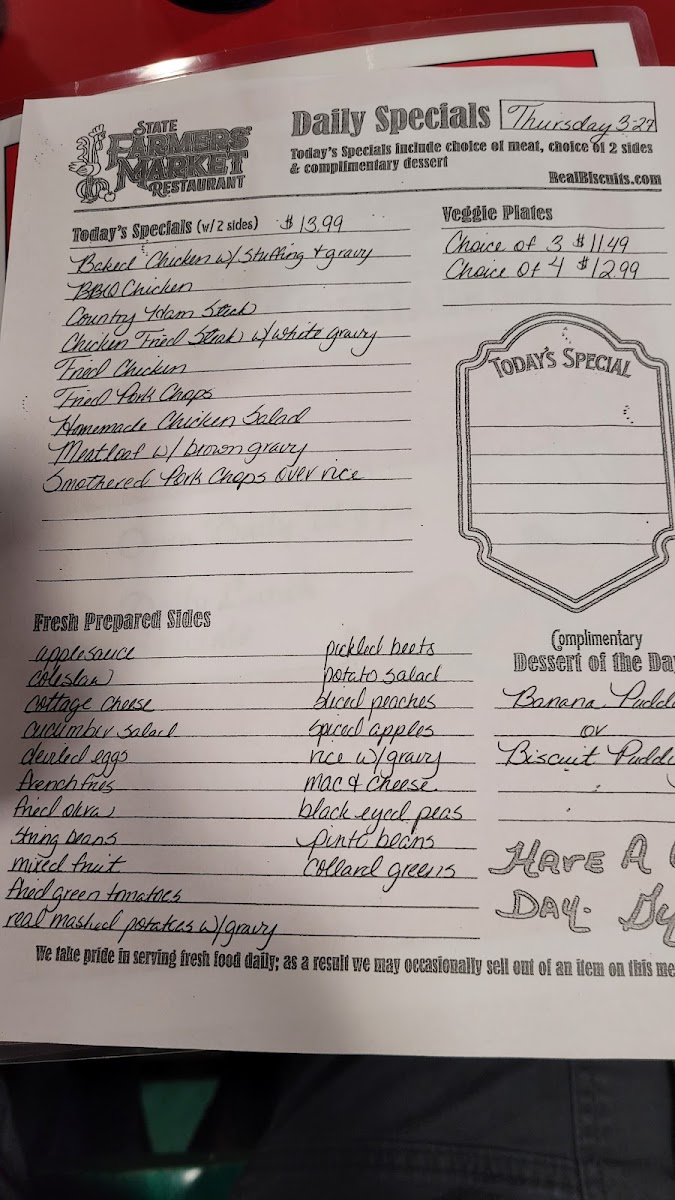 STATE
FARMERS'
MARKET
RESTAURANT
Daily Specials
Thursday 3-27
Today's Specials include choice of meat, choice of 2 sides
& complimentary dessert
RealBiscuits.com
Today's Specials (w/ 2 sides) $13.99
Baked Chicken w/ Stuffing & gravy
BBQ Chicken
Country Ham Steak
Chicken Fried Steak w/ white gravy
Fried Chicken
Fried Pork Chops
Homemade Chicken Salad
Meatloaf w/ brown gravy
Smothered Pork Chops over rice
Veggie Plates
Choice of 3 $11.49
Choice of 4 $12.99
TODAY'S SPECIAL
Fresh Prepared Sides
applesauce
coleslaw
cottage cheese
cucumber salad
deviled eggs
french fries
fried okra
string beans
mixed fruit
fried green tomatoes
real mashed potatoes w/ gravy
pickled beets
potato salad
sliced peaches
spiced apples
rice w/ gravy
mac & cheese
black eyed peas
pinto beans
collard greens
Complimentary
Dessert of the Da
Banana Pudd
or
Biscuit Puddi
HAVE A
DAY.
We take pride in serving fresh food daily; as a result we may occasionally sell out of an item on this me